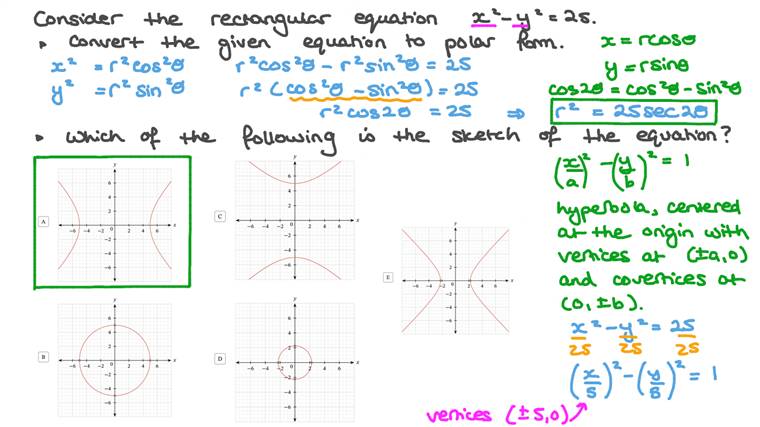 Consider the rectangular equation x² - y² = 25.
• Convert the given equation to polar form.
x² = r²cos²θ
y² = r²sin²θ
r²cos²θ - r²sin²θ = 25
r²(cos²θ - sin²θ) = 25
r²cos2θ = 25 ⇒ r² = 25sec2θ
x = rcosθ
y = rsinθ
cos2θ = cos²θ - sin²θ
• Which of the following is the sketch of the equation?
A
B
C
D
E
(x/a)² - (y/b)² = 1
hyperbola, centered
at the origin with
vertices at (±a,0)
and covertices at
(0, ±b).
x²/25 - y²/25 = 25/25
(x/5)² - (y/5)² = 1
vertices (±5,0)